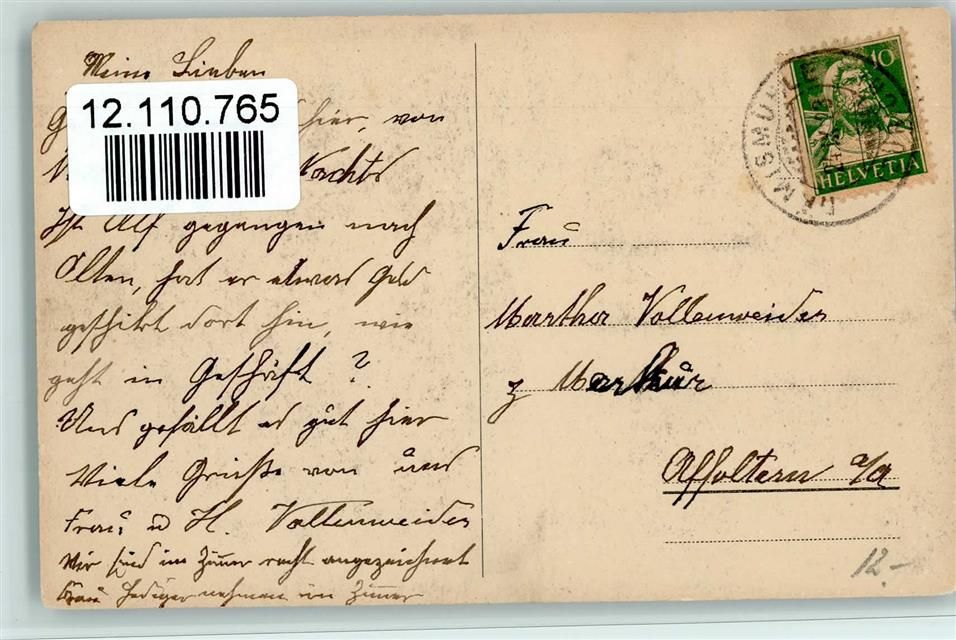 Meine Lieben
12.110.765
hier, von
Nachts
Ist Alf gegangen nach
Olten, hat er etwas Geld
geschikt dort hin, wie
geht im Geschäft ?
Uns gefällt es gut hier
Viele Grüße von uns
Frau u H. Vollenweider
Wir sind im Zimer recht
nehmen im Zimer
10
HELVETIA
RÄMISMÜHLE
Frau
Martha Vollenweider
z
Affoltern a/A
12.-